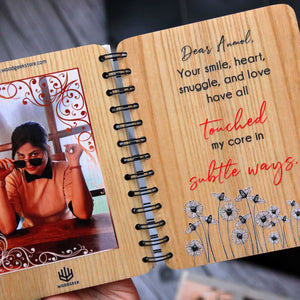 woodgeekstore.com
WOODGEEK
Dear Anmol,
Your smile, heart,
snuggle, and love
have all
touched
my core in
subtle ways.